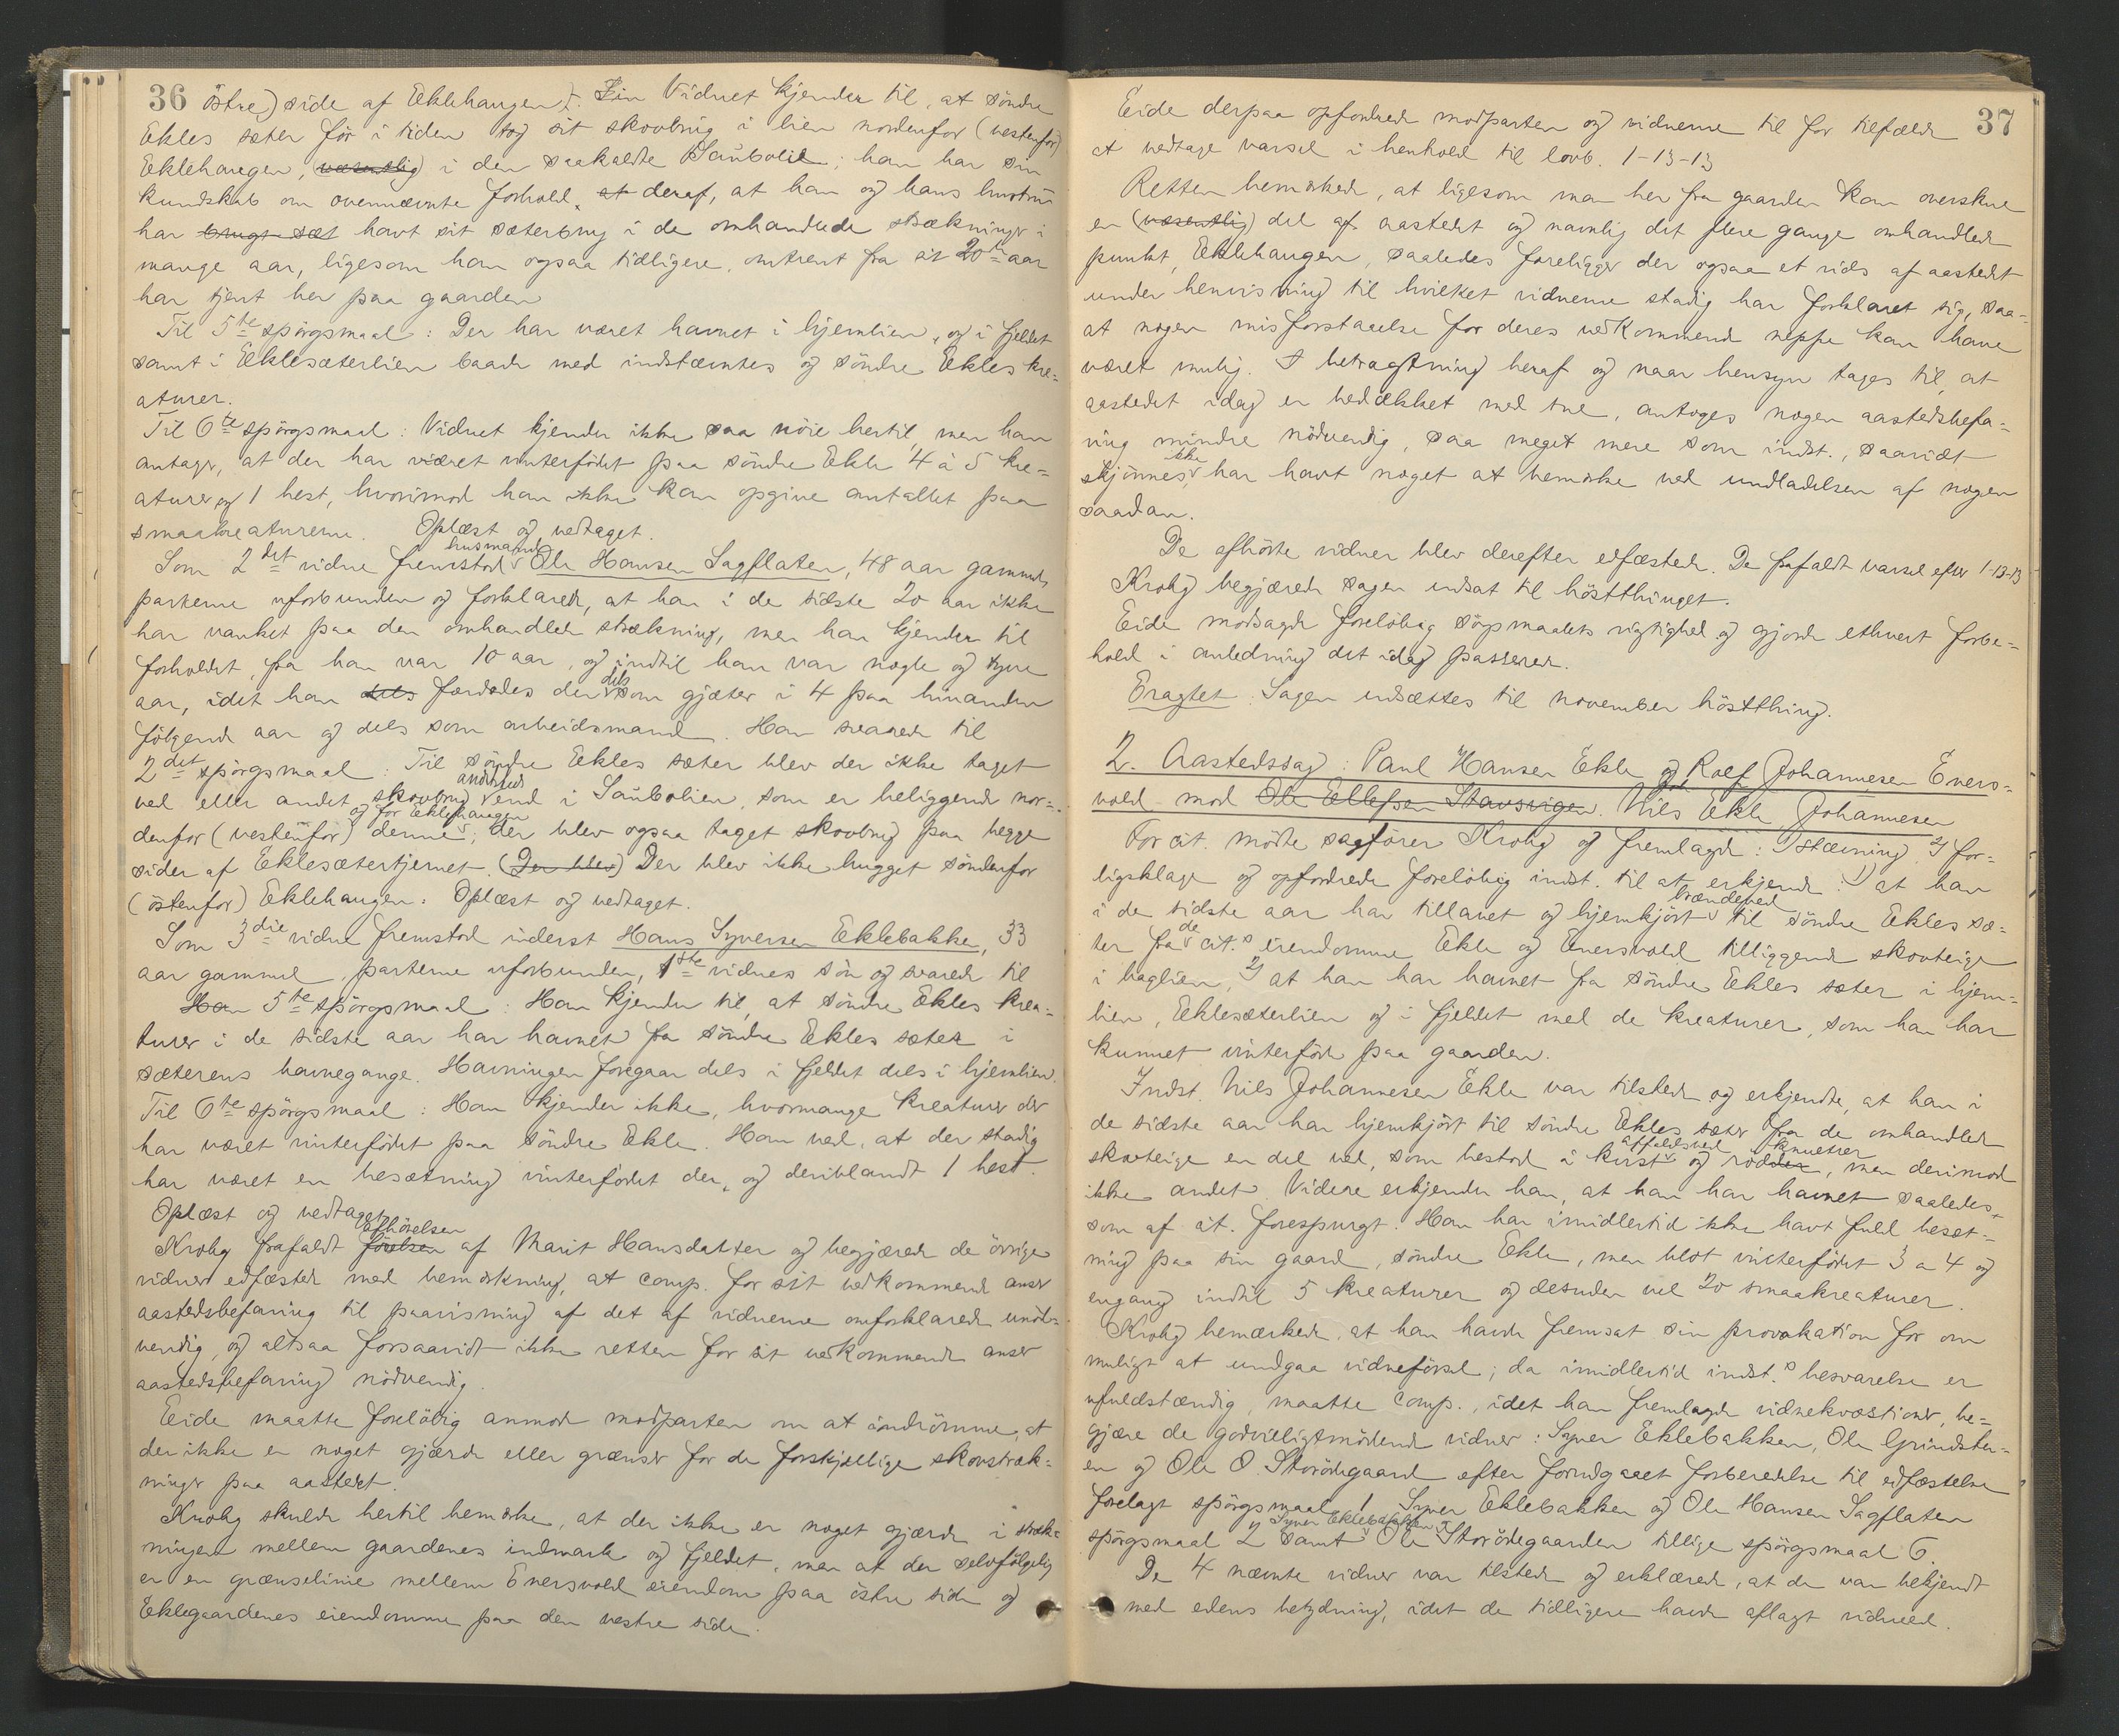 36 östre) side af Eklehaugen). Vidnet kjender til, at söndre
Ekles sæter för i tiden tog sit skovbrug i lien nordenfor (vestenfor)
Eklehaugen, (væsentlig) i den saakaldte Saubolie; han har sin
kundskab om ovennævnte forhold, at deraf, at han og hans hustru
har brugt sæt havt sit sæterbrug i de omhandlede strækninger i
mange aar, ligesom han ogsaa tidligere, omtrent fra sit 20de aar
har tjent her paa gaarden
Til 5te spörgsmaal: Der har været havnet i hjemlien, og i fjeldet
samt i Eklesæterlien baade med indstævntes og söndre Ekles kre=
aturer.
Til 6te spörgsmaal: Vidnet kjender ikke saa nöie hertil, men han
antager, at der har været vinterfödet paa söndre Ekle 4 à 5 kre=
aturer og 1 hest, hvorimod han ikke kan opgive antallet paa
smaakreaturerne. Oplæst og vedtaget.
Som 2det vidne fremstod husmand Ole Hansen Sagflaten, 48 aar gammel,
parterne uforbunden og forklarede, at han i de sidste 20 aar ikke
har vanket paa den omhandlede strækning, men han kjender til
forholdet, fra han var 10 aar, og indtil han var nogle og tyve
aar, idet han dels færdedes der dels som gjæter i 4 paa hinanden
fölgende aar og dels som arbeidsmand. Han svarede til
2det spörgsmaal: Til söndre Ekles sæter blev der ikke taget
ved eller andet skovbrug andetsteds end i Saubolien, som er beliggende nor=
denfor (vestenfor) denne og for Eklehaugen; der blev ogsaa taget skovbrug paa begge
sider af Eklesætertjernet. (Der blev) Der blev ikke hugget söndenfor
(östenfor) Eklehaugen. Oplæst og vedtaget.
Som 3die vidne fremstod inderst Hans Syversen Eklebakke, 33
aar gammel, parterne uforbunden, 1ste vidnes sön og svarede til
Han 5te spörgsmaal: Han kjender til, at söndre Ekles krea=
turer i de sidste aar har havnet fra söndre Ekles sæter i
sæterens havnegange. Havningen foregaar dels i fjeldet dels i hjemlien.
Til 6te spörgsmaal: Han kjender ikke, hvormange kreaturer der
har været vinterfödet paa söndre Ekle. Han ved, at der stadig
har været en besætning vinterfödet der, og deriblandt 1 hest.
Oplæst og vedtaget.
Krohg frafaldt förelsen afhörelsen af Marit Hansdatter og begjærede de övrige
vidner edfæstede med bemærkning, at comp. for sit vedkommende anser
aastedsbefaring til paavisning af det af vidnerne omforklarede unöd=
vendig, og altsaa forsaavidt ikke retten for sit vedkommende anser
aastedsbefaring nödvendig.
Eide maatte forelöbig anmode modparten om at indrömme, at
der ikke er noget gjærde eller grænser for de forskjellige skovstræk=
ninger paa aastedet.
Krohg skulde hertil bemærke, at der ikke er noget gjærde i stræk=
ningen mellem gaardenes indmark og fjeldet, men at der selvfölgelig
er en grænselinie mellem Enersvold eiendom paa östre side og
Eklegaardenes eiendomme paa den vestre side.
37
Eide derpaa opfordrede modparten og vidnerne til for tilfælde
at vedtage varsel i henhold til lovb. 1-13-13
Retten bemærkede, at ligesom man her fra gaarden kan overskue
en (væsentlig) del af aastedet og navnlig det flere gange omhandlede
punkt, Eklehaugen, saaledes foreligger der ogsaa et rids af aastedet
under henvisning til hvilket vidnerne stadig har forklaret sig, saa=
at nogen misforstaaelse for deres vedkommende neppe kan have
været mulig. I betragtning heraf og naar hensyn tages til, at
aastedet idag er bedækket med sne, antoges nogen aastedsbefa=
ring mindre nödvendig, saa meget mere som indst., saavidt
skjönnes, ikke har havt noget at bemærke ved undladelsen af nogen
saadan.
De afhörte vidner blev derefter edfæstede. De frafaldt varsel efter 1-13-13
Krohg begjærede sagen udsat til höstthinget.
Eide modsagde forelöbig sögsmaalets rigtighed og gjorde ethvert forbe=
hold i anledning det idag passerede.
Eragtet: Sagen udsættes til november höstthing.
2. Aastedssag: Paul Hansen Ekle og Rolf Johannesen Eners=
vold mod Ole Ellefsen Stavsvigen. Nils Ekle Johannesen
For cit. mödte sagförer Krohg og fremlagde: 1) stævning 2) for=
ligsklage og opfordrede forelöbig indst. til at erkjende: 1) at han
i de sidste aar har tillavet og hjemkjört brændeved til söndre Ekles sæ=
ter fra de cit.s eiendomme Ekle og Enersvold tilliggende skovteige
i baglien, 2) at han har havnet fra söndre Ekles sæter i hjem=
lien, Eklesæterlien og i fjeldet med de kreaturer, som han har
kunnet vinterföde paa gaarden.
Indst. Nils Johannesen Ekle var tilstede og erkjendte, at han i
de sidste aar har hjemkjört til söndre Ekles sæter fra de omhandlede
skovteige en del ved, som bestod i kvist affaldsved og rödder, men derimod
ikke andet. Videre erkjender han, at han har havnet saaledes,
som af cit. forespurgt. Han har imidlertid ikke havt fuld besæt=
ning paa sin gaard, söndre Ekle, men blot vinterfödet 3 a 4 og
engang indtil 5 kreaturer og desuden vel 20 smaakreaturer.
Krohg bemærkede, at han havde fremsat sin provokation for om
muligt at undgaa vidneförsel; da imidlertid indst.s besvarelse er
ufuldstændig, maatte comp., idet han fremlagde vidnekvæstioner, be=
gjære de godvilligtmödende vidner: Syver Eklebakken, Ole Grindste=
en og Ole O. Storödegaard efter forudgaaet forberedelse til edfæstelse
forelagt spörgsmaal 1. Syver Eklebakken og Ole Hansen Sagflaten
spörgsmaal 2 samt Syver Eklebakken Ole Storödegaarden tillige spörgsmaal 6.
De 4 nævnte vidner var tilstede og erklærede, at de var bekjendt
med edens betydning, idet de tidligere havde aflagt vidneed.